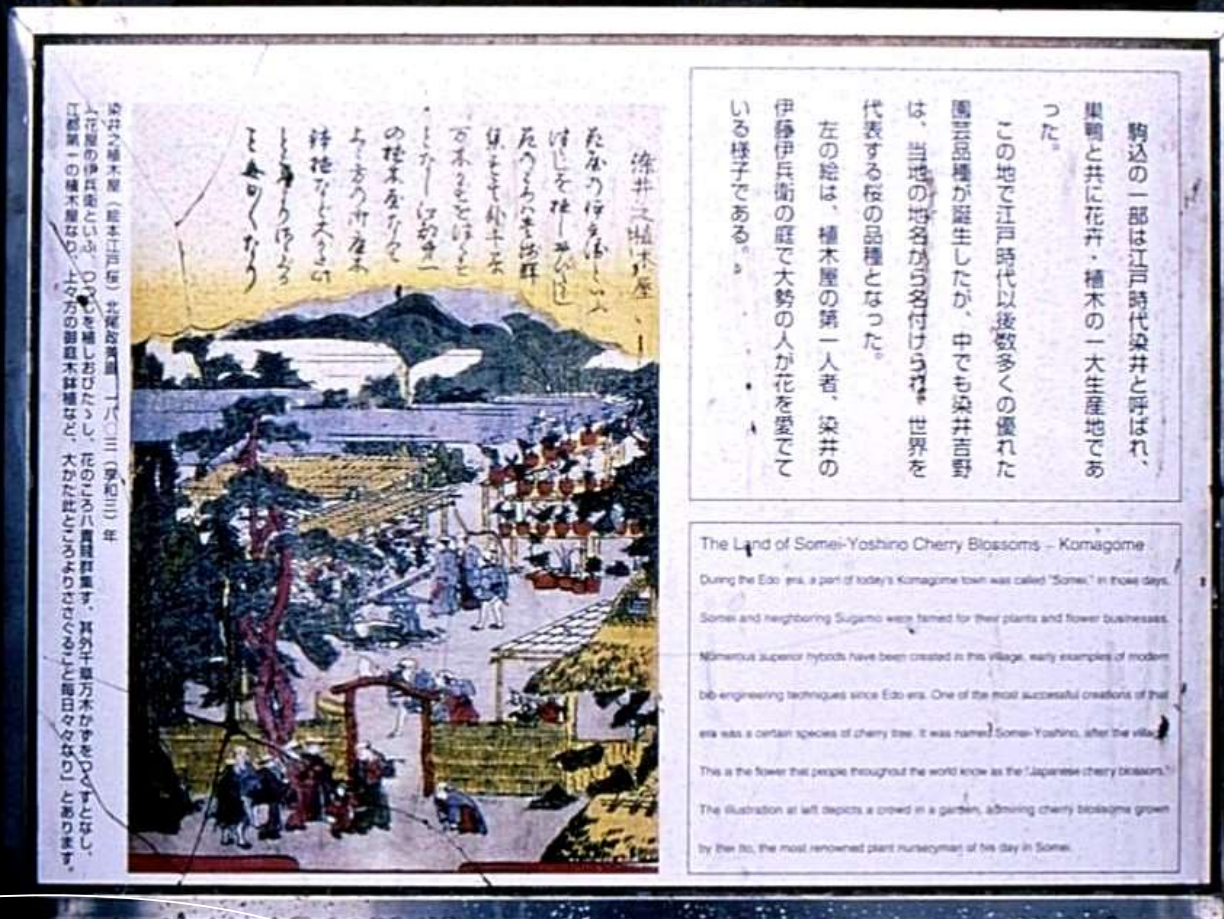 駒込の一部は江戸時代染井と呼ばれ、
巣鴨と共に花卉・植木の一大生産地であ
った。
この地で江戸時代以後数多くの優れた
園芸品種が誕生したが、中でも染井吉野
は、当地の地名から名付けられ、世界を
代表する桜の品種となった。
左の絵は、植木屋の第一人者、染井の
伊藤伊兵衛の庭で大勢の人が花を愛でて
いる様子である。
The Land of Somei-Yoshino Cherry Blossoms – Komagome
During the Edo era, a part of today's Komagome town was called "Somei." In those days,
Somei and neighboring Sugamo were famed for their plants and flower businesses.
Numerous superior hybrids have been created in this village, early examples of modern
bio-engineering techniques since Edo era. One of the most successful creations of that
era was a certain species of cherry tree. It was named Somei-Yoshino, after the village.
This is the flower that people throughout the world know as the "Japanese cherry blossom."
The illustration at left depicts a crowd in a garden, admiring cherry blossoms grown
by Ihei Ito, the most renowned plant nurseryman of his day in Somei.
染井之植木屋
花屋の伊兵衛といふ
つつじを植しおびたゝし
花のころハ貴賤群
集す其外千草
万木かずをつくすと
となし江都第一
の植木屋なり
上々方の御庭木
鉢植など大かた此
ところよりささぐる
こと毎日々々なり
染井之植木屋（絵本江戸桜） 北尾政美画 一八〇三（享和三）年
「花屋の伊兵衛といふ、つつじを植しおびたゝし、花のころハ貴賤群集す、其外千草万木かずをつくすとなし、
江都第一の植木屋なり、上々方の御庭木鉢植など、大かた此ところよりささぐること毎日々々なり」とあります。